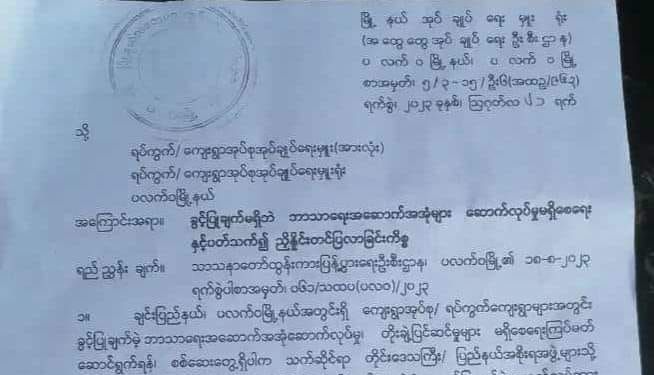 မြို့ နယ် အုပ် ချုပ် ရေး မှူး ရုံး
(အ ထွေ ထွေ အုပ် ချုပ် ရေး ဦး စီး ဌာ န)
ပ လက် ဝ မြို့ နယ်၊ ပ လက် ဝ မြို့
စာအမှတ်၊ ၅ / ၃ - ၁၅ / ဦး၆(အထည
ရက်စွဲ၊ ၂၀၂၃ ခုနှစ်၊ ဩဂုတ်လ ၂၁ ရက်
သို့
ရပ်ကွက်/ ကျေးရွာအုပ်စုအုပ်ချုပ်ရေးမှူး(အားလုံး)
ရပ်ကွက်/ ကျေးရွာအုပ်စုအုပ်ချုပ်ရေးမှူးရုံး
ပလက်ဝမြို့နယ်
အကြောင်းအရာ။ ခွင့်ပြုချက်မရှိဘဲ ဘာသာရေးအဆောက်အအုံများ ဆောက်လုပ်မှုမရှိစေရေး
နှင့်ပတ်သက်၍ ညှိနှိုင်းတင်ပြလာခြင်းကိစ္စ
ရည် ညွှန်း ချက်။ သာသနာတော်ထွန်းကားပြန့်ပွားရေးဦးစီးဌာန၊ ပလက်ဝမြို့၏ ၁၈-၈-၂၀၂၃
ရက်စွဲပါစာအမှတ်၊ ၀၆၁/သထပ(ပလဝ)/၂၀၂၃
၁။ ချင်းပြည်နယ်၊ ပလက်ဝမြို့နယ်အတွင်းရှိ ကျေးရွာအုပ်စု/ ရပ်ကွက်ကျေးရွာများအတွင်း
ခွင့်ပြုချက်မဲ့ ဘာသာရေးအဆောက်အအုံဆောက်လုပ်မှု၊ တိုးချဲ့ပြင်ဆင်မှုများ မရှိစေရေးကြပ်မတ်
ဆောင်ရွက်ရန်၊ စစ်ဆေးတွေ့ရှိပါက သက်ဆိုင်ရာ တိုင်းဒေသကြီး/ ပြည်နယ်အစိုးရအဖွဲ့များသို့